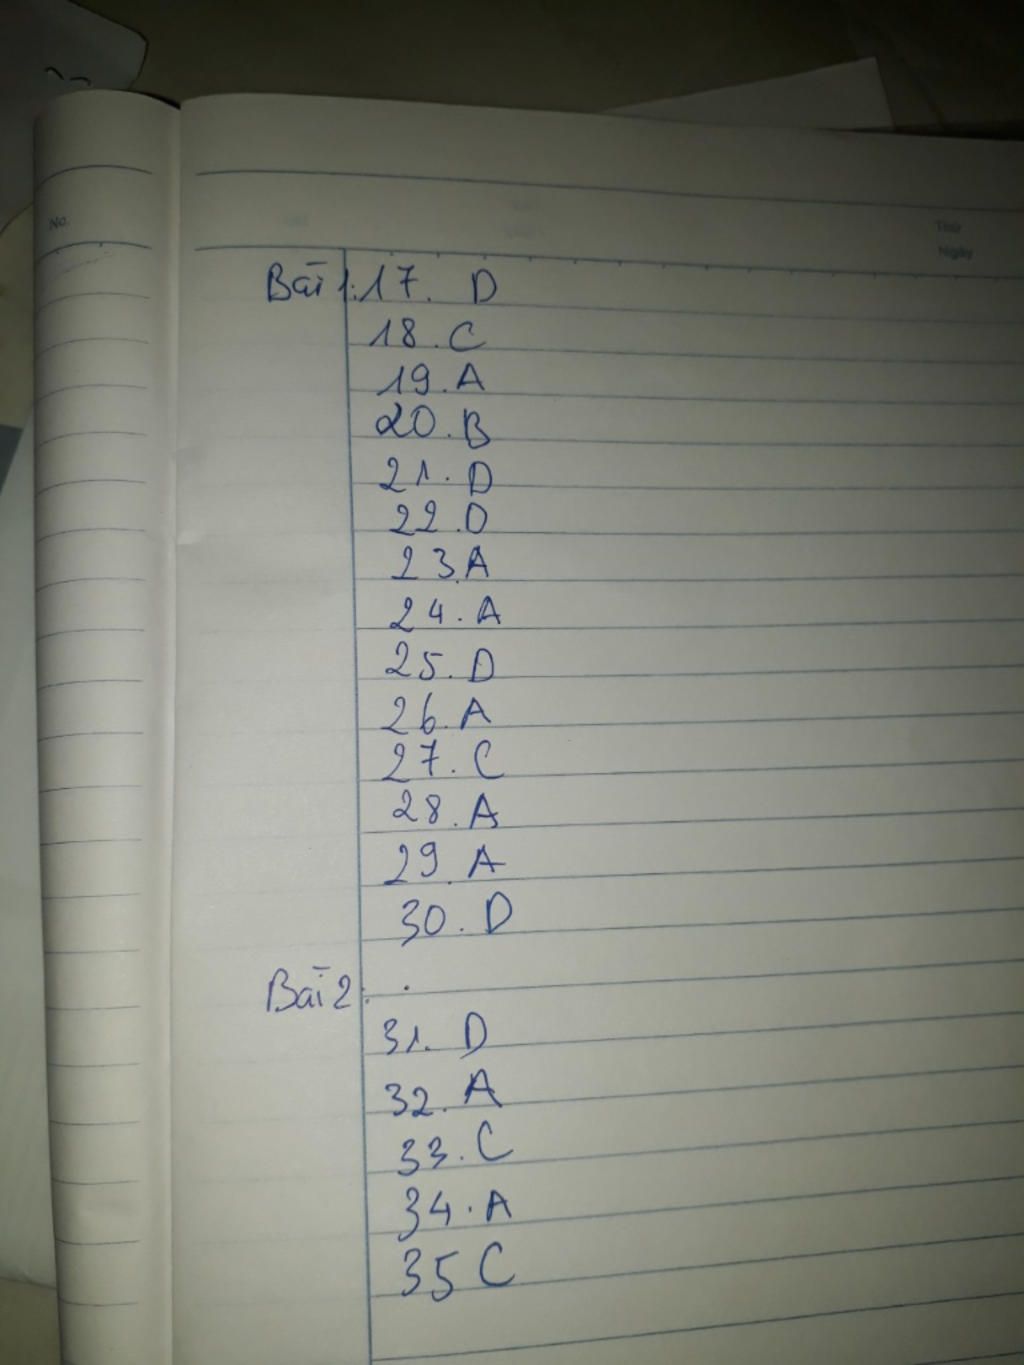 No.
Thứ
Ngày
Bài 1: 17. D
18. C
19. A
20. B
21. D
22. D
23. A
24. A
25. D
26. A
27. C
28. A
29. A
30. D
Bài 2:
31. D
32. A
33. C
34. A
35 C